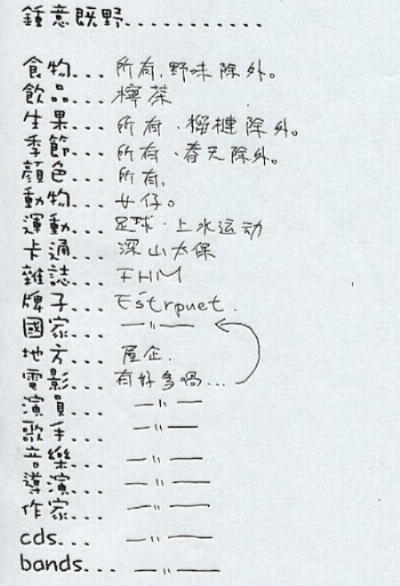 鍾意既野............
食物... 所有,野味除外。
飲品... 檸茶
生果... 所有,榴槤除外。
季節... 所有,春天除外。
顏色... 所有,
動物... 女仔。
運動... 足球、上水运动
卡通... 深山大保
雜誌... FHM
牌子...
國家... —〃—
地方... 屋企.
電影... 有好多喎...
演員... —〃—
歌手... —〃—
音樂... —〃—
導演... —〃—
作家... —〃—
cds... —〃—
bands... —〃—